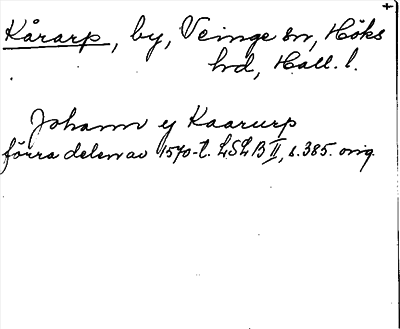 Kårarp, by, Veinge sn, Höks
hd, Hall. l.
Johann ij Kaarurp
förra delen av 1570-t. LSLB II, s. 385. orig.